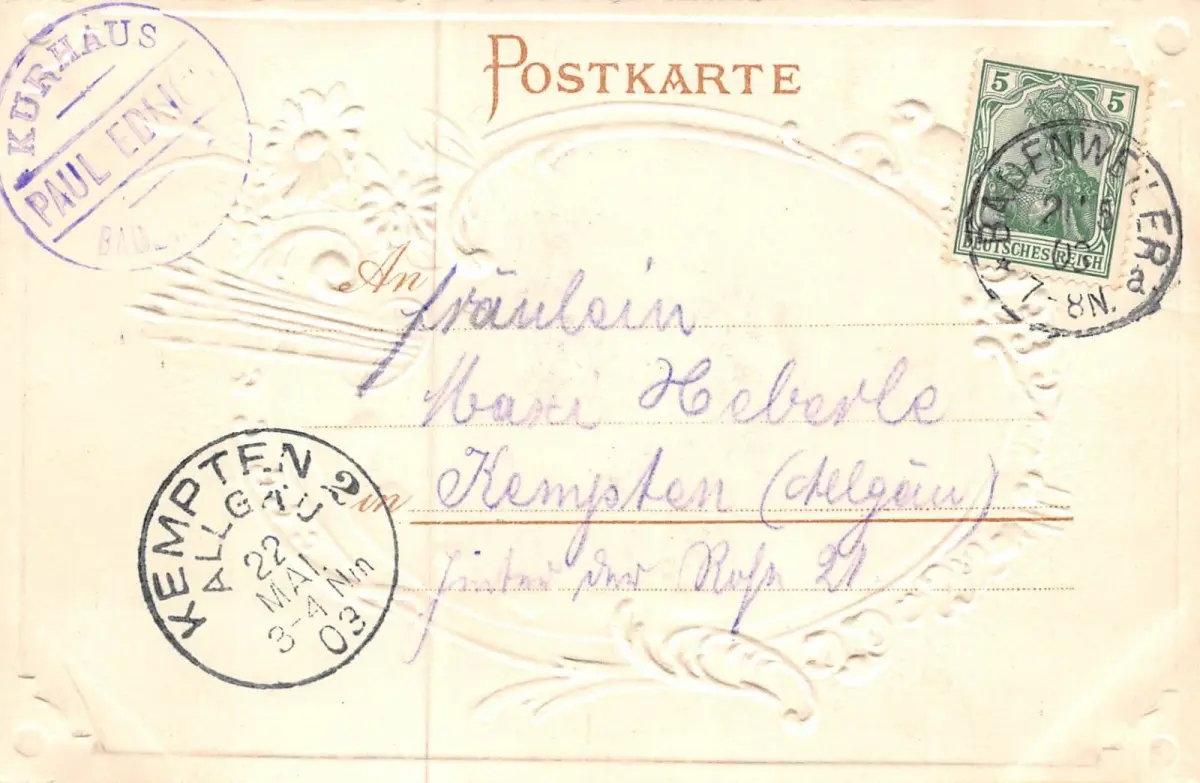 KURHAUS
PAUL
POSTKARTE
5 5
DEUTSCHES REICH
BADENWEILER
21 5
03
* 7-8N. a
An Fräulein
Maxi Heberle
in Kempten (Allgäu)
Hinter der 21.
KEMPTEN 2
ALLGÄU
22
MAI
3-4 Nm
03